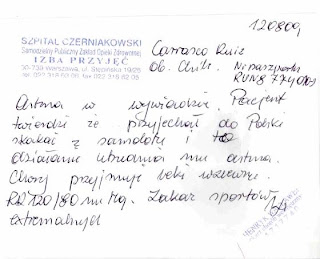 120809
SZPITAL CZERNIAKOWSKI
Samodzielny Publiczny Zakład Opieki Zdrowotnej
IZBA PRZYJĘĆ
00-739 Warszawa, ul. Stępińska 19/25
Carrasco Ruiz
Ob. Chile. Nr paszportu
Astma w wywiadzie. Pacjent
twierdzi że przyjechał do Polski
skakać z samolotu i to
działanie utrudnia mu astma.
Chory przyjmuje leki wziewne.
RR 120/80 mmHg. Zakaz sportów
extremalnych